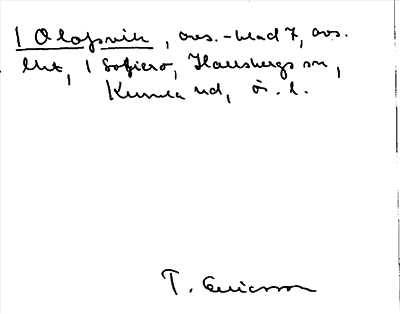 1 Olofsvik, avs.-blad 7, avs.
lht, 1 Sofiero, Hallsbergs sn,
Kumla hd, ö. l.
T. Ericsson